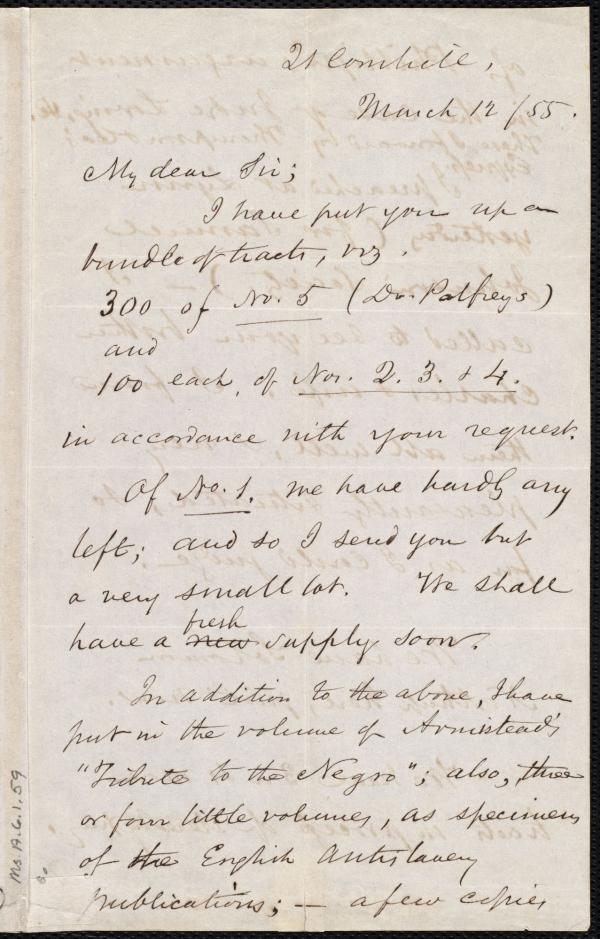 21 Cornhill,
March 12 /55.
My dear Sir;
I have put you up a
bundle of tracts, viz.
300 of No. 5 (Dr. Palfrey's)
and
100 each, of Nos. 2. 3. & 4.
in accordance with your request.
Of No. 1. we have hardly any
left; and so I send you but
a very small lot. We shall
fresh
have a new supply soon.
In addition to the above, I have
put in the volume of Armistead's
"Tribute to the Negro"; also, three
or four little volumes, as specimens
of the English Antislavery
publications; — a few copies
Ms. A.6.1.59